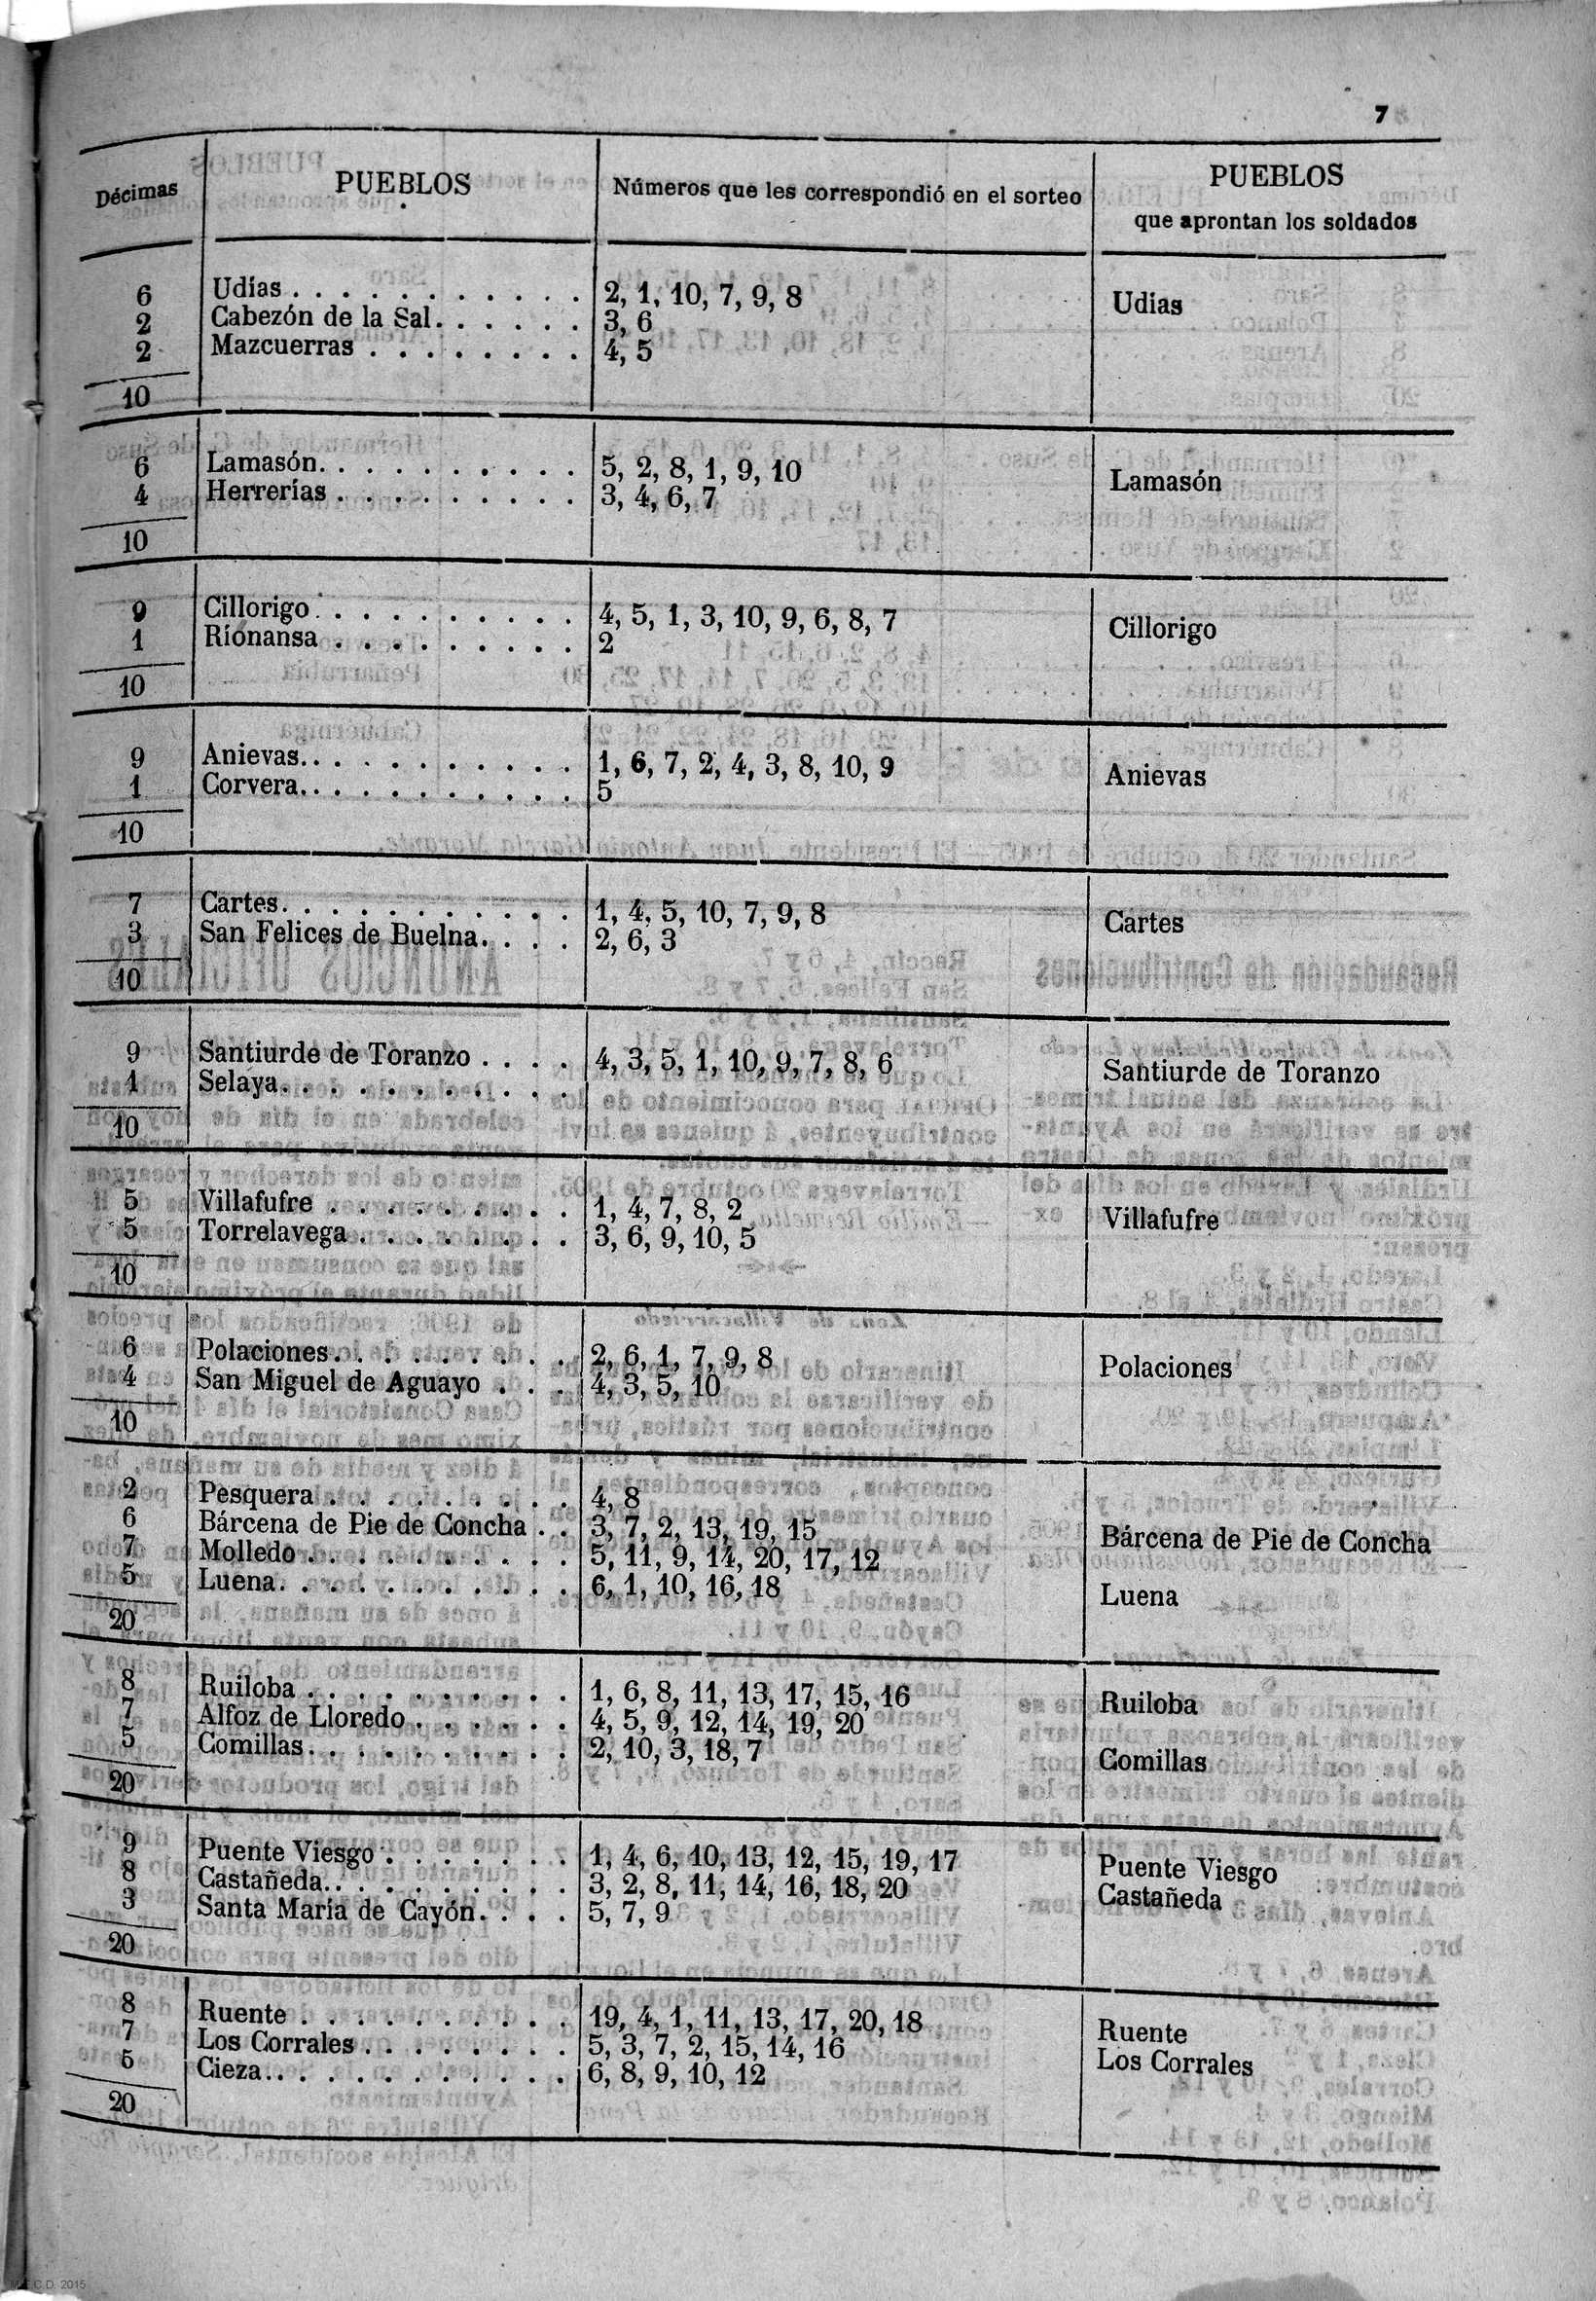 7
Décimas PUEBLOS Números que les correspondió en el sorteo PUEBLOS
que aprontan los soldados
6 Udías . . . . . . . . . . . 2, 1, 10, 7, 9, 8 Udias
2 Cabezón de la Sal. . . . . . 3, 6
2 Mazcuerras . . . . . . . . 4, 5
10
6 Lamasón. . . . . . . . . . 5, 2, 8, 1, 9, 10 Lamasón
4 Herrerías . . . . . . . . . 3, 4, 6, 7
10
9 Cillorigo . . . . . . . . . . 4, 5, 1, 3, 10, 9, 6, 8, 7 Cillorigo
1 Ríonansa . . . . . . . . . . 2
10
9 Anievas. . . . . . . . . . . 1, 6, 7, 2, 4, 3, 8, 10, 9 Anievas
1 Corvera. . . . . . . . . . . 5
10
7 Cartes. . . . . . . . . . . 1, 4, 5, 10, 7, 9, 8 Cartes
3 San Felices de Buelna. . . . 2, 6, 3
10
9 Santiurde de Toranzo . . . . 4, 3, 5, 1, 10, 9, 7, 8, 6 Santiurde de Toranzo
1 Selaya. . . . . . . . . . .
10
5 Villafufre . . . . . . . . . 1, 4, 7, 8, 2 Villafufre
5 Torrelavega . . . . . . . . 3, 6, 9, 10, 5
10
6 Polaciones. . . . . . . . . 2, 6, 1, 7, 9, 8 Polaciones
4 San Miguel de Aguayo . . . 4, 3, 5, 10
10
2 Pesquera . . . . . . . . . 4, 8
6 Bárcena de Pie de Concha . . 3, 7, 2, 13, 19, 15 Bárcena de Pie de Concha
7 Molledo . . . . . . . . . . 5, 11, 9, 14, 20, 17, 12
5 Luena. . . . . . . . . . . 6, 1, 10, 16, 18 Luena
20
8 Ruiloba . . . . . . . . . . 1, 6, 8, 11, 13, 17, 15, 16 Ruiloba
7 Alfoz de Lloredo . . . . . . 4, 5, 9, 12, 14, 19, 20
5 Comillas. . . . . . . . . . 2, 10, 3, 18, 7 Comillas
20
9 Puente Viesgo . . . . . . . 1, 4, 6, 10, 13, 12, 15, 19, 17 Puente Viesgo
8 Castañeda. . . . . . . . . . 3, 2, 8, 11, 14, 16, 18, 20 Castañeda
3 Santa María de Cayón. . . . 5, 7, 9
20
8 Ruente . . . . . . . . . . 19, 4, 1, 11, 13, 17, 20, 18 Ruente
7 Los Corrales . . . . . . . . 5, 3, 7, 2, 15, 14, 16 Los Corrales
5 Cieza. . . . . . . . . . . . 6, 8, 9, 10, 12
20
C.D. 2015